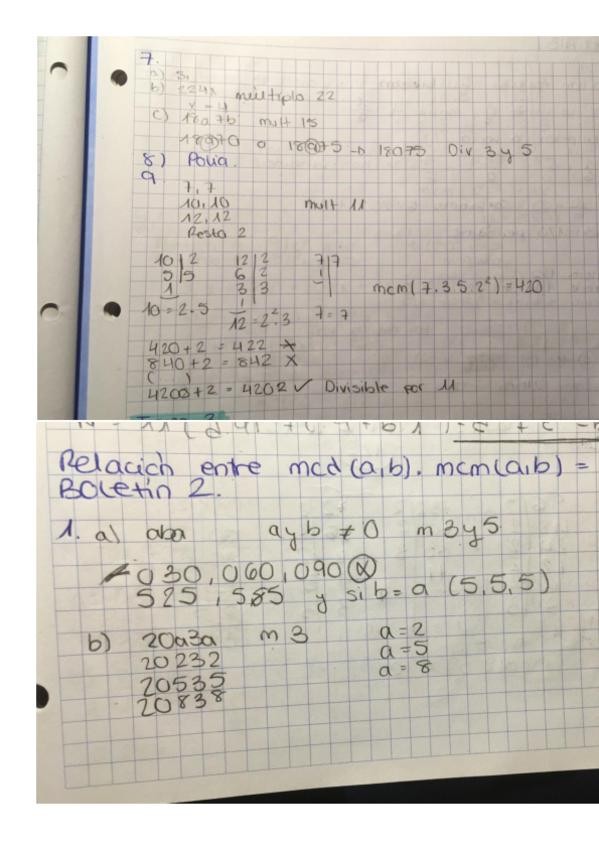 7.
a) Si
b) 224x múltiplo 22
x = 4
c) 18a7b mult 15
18a70 o 18a75 → 18075 Div 3 y 5
8)
9
7, 7
10, 10 mult 11
12, 12
Resto 2
10 | 2 12 | 2 7 | 7
5 | 5 6 | 2 1
1 3 | 3 mcm(7.3.5.2²)=420
1
10 = 2.5 12 = 2².3 7 = 7
420+2 = 422 X
840+2 = 842 X
( )
4200+2 = 4202 ✓ Divisible por 11
Relación entre mcd(a,b). mcm(a,b) =
Boletín 2.
1. a) aba a y b ≠ 0 m 3 y 5
030, 060, 090 X
525, 585 y si b = a (5,5,5)
b) 20a3a m 3 a = 2
20232 a = 5
20535 a = 8
20838